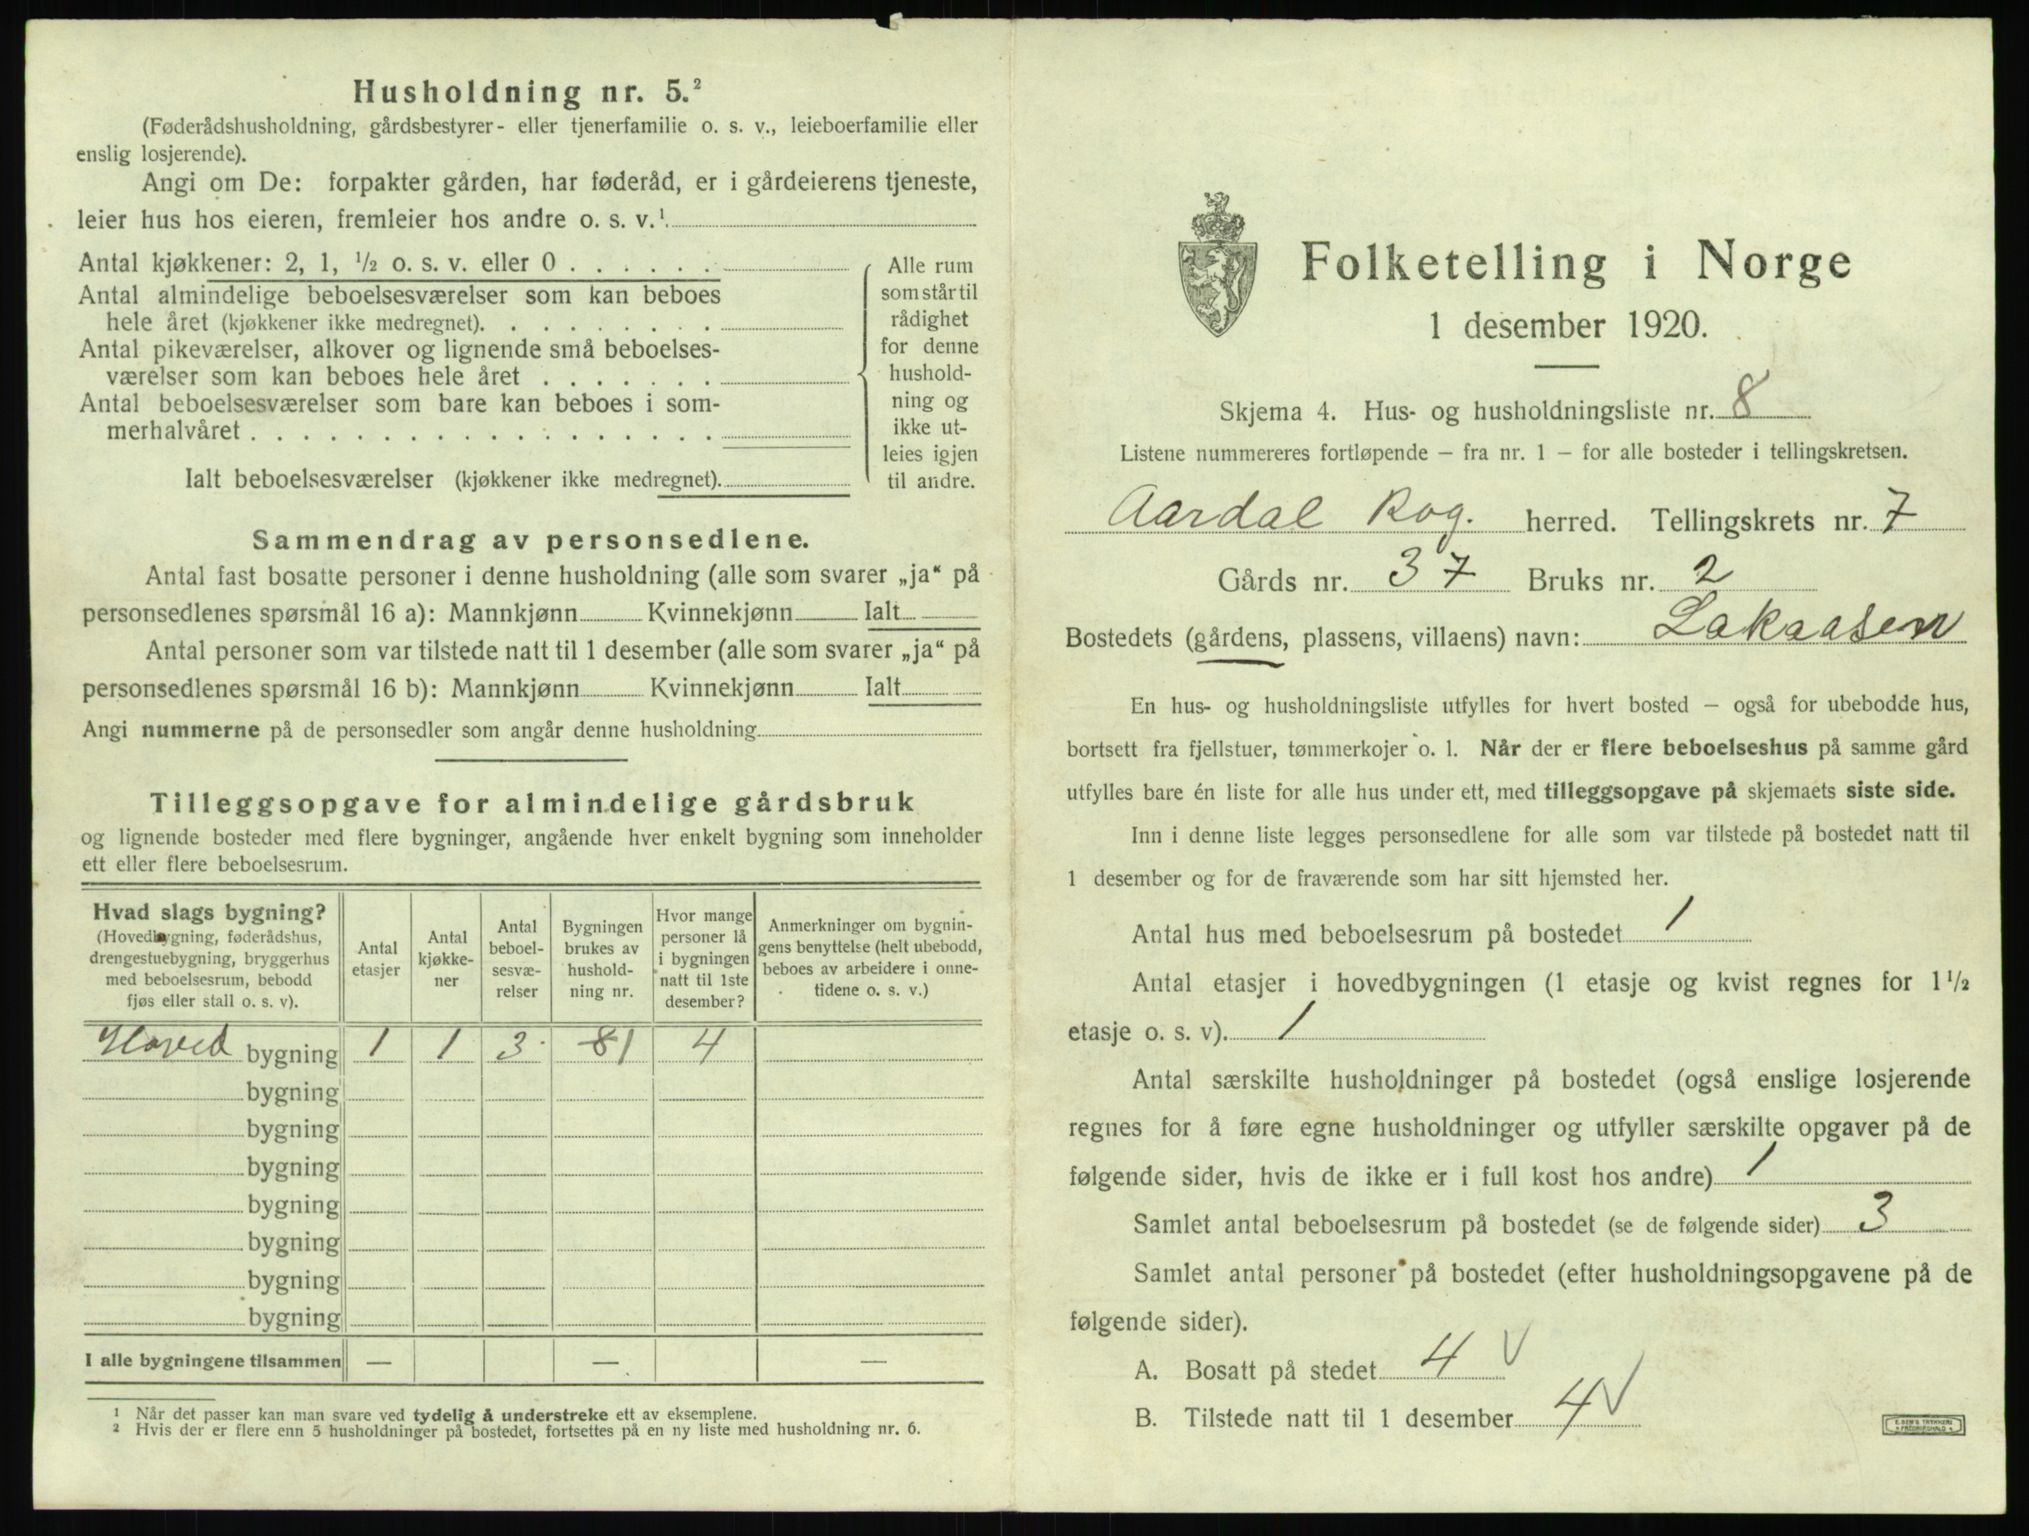 Husholdning nr. 5.²
(Føderådshusholdning, gårdsbestyrer- eller tjenerfamilie o. s. v., leieboerfamilie eller
enslig losjerende).
Angi om De: forpakter gården, har føderåd, er i gårdeierens tjeneste,
leier hus hos eieren, fremleier hos andre o. s. v.¹
Antal kjøkkener: 2, 1, ½ o. s. v. eller 0 . . . . . .
Antal almindelige beboelsesværelser som kan beboes
hele året (kjøkkener ikke medregnet). . . . . . . . .
Antal pikeværelser, alkover og lignende små beboelses-
værelser som kan beboes hele året . . . . . . .
Antal beboelsesværelser som bare kan beboes i som-
merhalvåret . . . . . . . . . . . . . . . . .
Ialt beboelsesværelser (kjøkkener ikke medregnet).
Alle rum
som står til
rådighet
for denne
hushold-
ning og
ikke ut-
leies igjen
til andre.
Sammendrag av personsedlene.
Antal fast bosatte personer i denne husholdning (alle som svarer „ja“ på
personsedlenes spørsmål 16 a): Mannkjønn Kvinnekjønn Ialt
Antal personer som var tilstede natt til 1 desember (alle som svarer „ja“ på
personsedlenes spørsmål 16 b): Mannkjønn Kvinnekjønn Ialt
Angi nummerne på de personsedler som angår denne husholdning
Tilleggsopgave for almindelige gårdsbruk
og lignende bosteder med flere bygninger, angående hver enkelt bygning som inneholder
ett eller flere beboelsesrum.
Hvad slags bygning?
(Hovedbygning, føderådshus,
drengestuebygning, bryggerhus
med beboelsesrum, bebodd
fjøs eller stall o. s. v).
Antal
etasjer
Antal
kjøkke-
ner
Antal
beboel-
sesvæ-
relser
Bygningen
brukes av
hushold-
ning nr.
Hvor mange
personer lå
i bygningen
natt til 1ste
desember?
Anmerkninger om bygnin-
gens benyttelse (helt ubebodd,
beboes av arbeidere i onne-
tidene o. s. v.)
Hoved bygning 1 1 3 8 1 4
bygning
bygning
bygning
bygning
bygning
bygning
bygning
I alle bygningene tilsammen — — —
¹ Når det passer kan man svare ved tydelig å understreke ett av eksemplene.
² Hvis der er flere enn 5 husholdninger på bostedet, fortsettes på en ny liste med husholdning nr. 6.
Folketelling i Norge
1 desember 1920.
Skjema 4. Hus- og husholdningsliste nr. 8
Listene nummereres fortløpende — fra nr. 1 — for alle bosteder i tellingskretsen.
Aardal Rog. herred. Tellingskrets nr. 7
Gårds nr. 37 Bruks nr. 2
Bostedets (gårdens, plassens, villaens) navn: Lakaasen
En hus- og husholdningsliste utfylles for hvert bosted — også for ubebodde hus,
bortsett fra fjellstuer, tømmerkojer o. l. Når der er flere beboelseshus på samme gård
utfylles bare én liste for alle hus under ett, med tilleggsopgave på skjemaets siste side.
Inn i denne liste legges personsedlene for alle som var tilstede på bostedet natt til
1 desember og for de fraværende som har sitt hjemsted her.
Antal hus med beboelsesrum på bostedet 1
Antal etasjer i hovedbygningen (1 etasje og kvist regnes for 1½
etasje o. s. v). 1
Antal særskilte husholdninger på bostedet (også enslige losjerende
regnes for å føre egne husholdninger og utfyller særskilte opgaver på de
følgende sider, hvis de ikke er i full kost hos andre) 1
Samlet antal beboelsesrum på bostedet (se de følgende sider) 3
Samlet antal personer på bostedet (efter husholdningsopgavene på de
følgende sider).
A. Bosatt på stedet 4 V
B. Tilstede natt til 1 desember 4 V